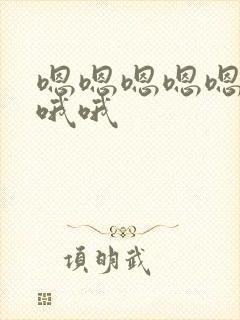 嗯嗯嗯嗯嗯
哦哦
项明武